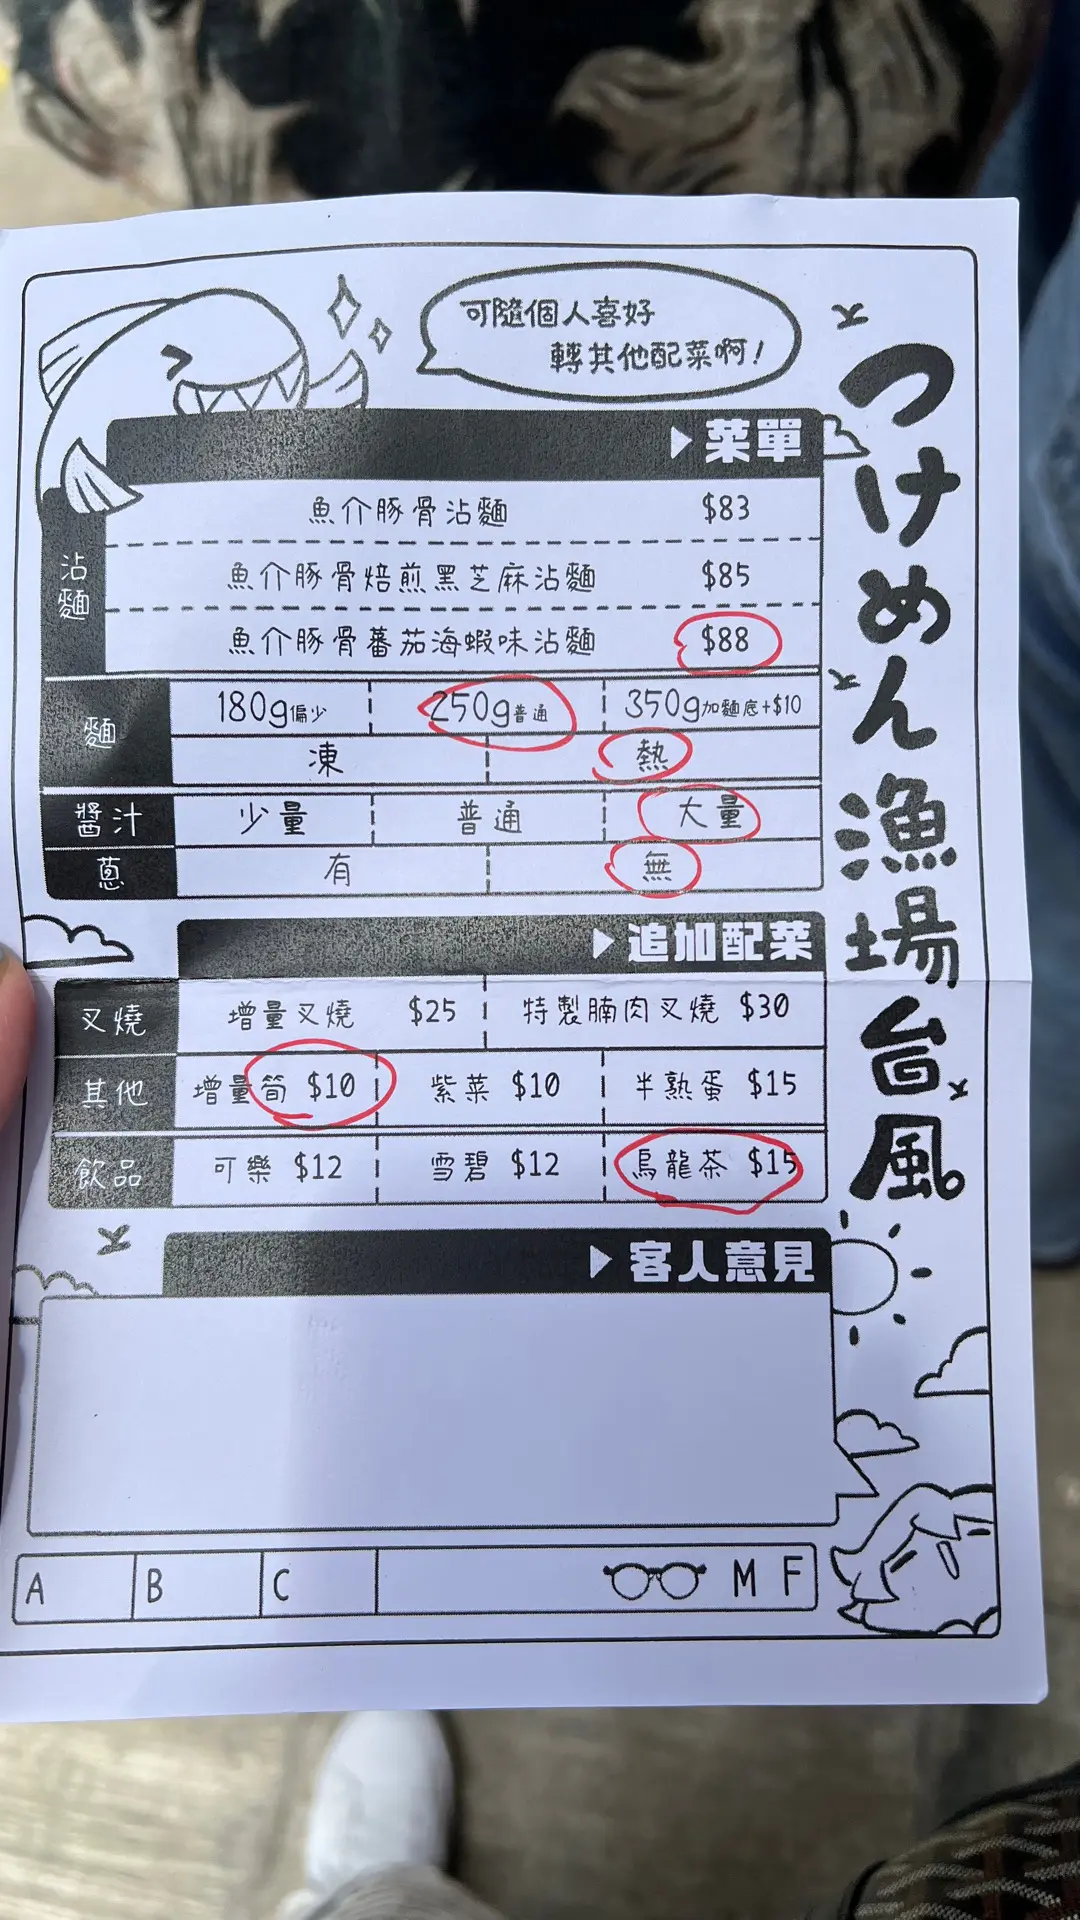 可隨個人喜好
轉其他配菜啊！
つけめん漁場台風
菜單
沾麵
魚介豚骨沾麵 $83
魚介豚骨焙煎黑芝麻沾麵 $85
魚介豚骨蕃茄海蝦味沾麵 $88
麵
180g偏少 250g普通 350g加麵底+$10
凍 熱
醬汁 少量 普通 大量
蔥 有 無
追加配菜
叉燒 增量叉燒 $25 特製腩肉叉燒 $30
其他 增量筍 $10 紫菜 $10 半熟蛋 $15
飲品 可樂 $12 雪碧 $12 烏龍茶 $15
客人意見
A B C M F